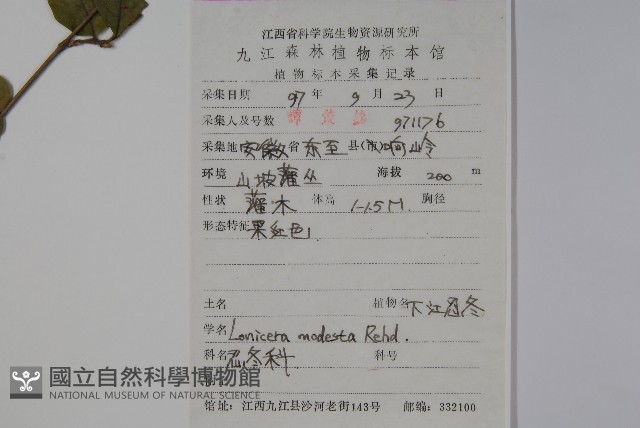 江西省科学院生物资源研究所
九江森林植物标本馆
植物标本采集记录
采集日期 97 年 9 月 23 日
采集人及号数 谭策铭 971176
采集地 安徽 省 东至 县(市) 响山岭
环境 山坡灌丛 海拔 200 m
性状 灌木 体高 1-1.5M. 胸径
形态特征 果红色
土名 植物名 下江忍冬
学名 Lonicera modesta Rehd.
科名 忍冬科 科号
國立自然科學博物館
NATIONAL MUSEUM OF NATURAL SCIENCE
馆址:江西九江县沙河老街143号 邮编:332100